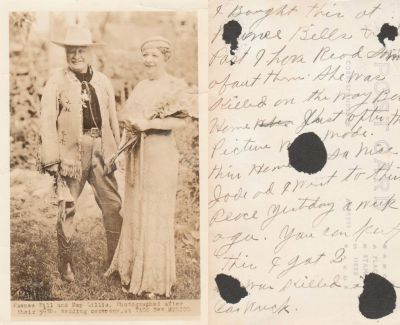 Pawnee Bill and May Lillie, Photographed after
their 50th. Wedding ceremony, at TAOS New MEXICO
I Bought this at
Pawnee Bills tr
Past I have Read
about them. She was
Killed on the Way
Home Just after the
Picture made.
Home so nice
Jode and I went to their
Place yesterday a week
ago. You can keep
this & I got 2
was killed
Car truck.